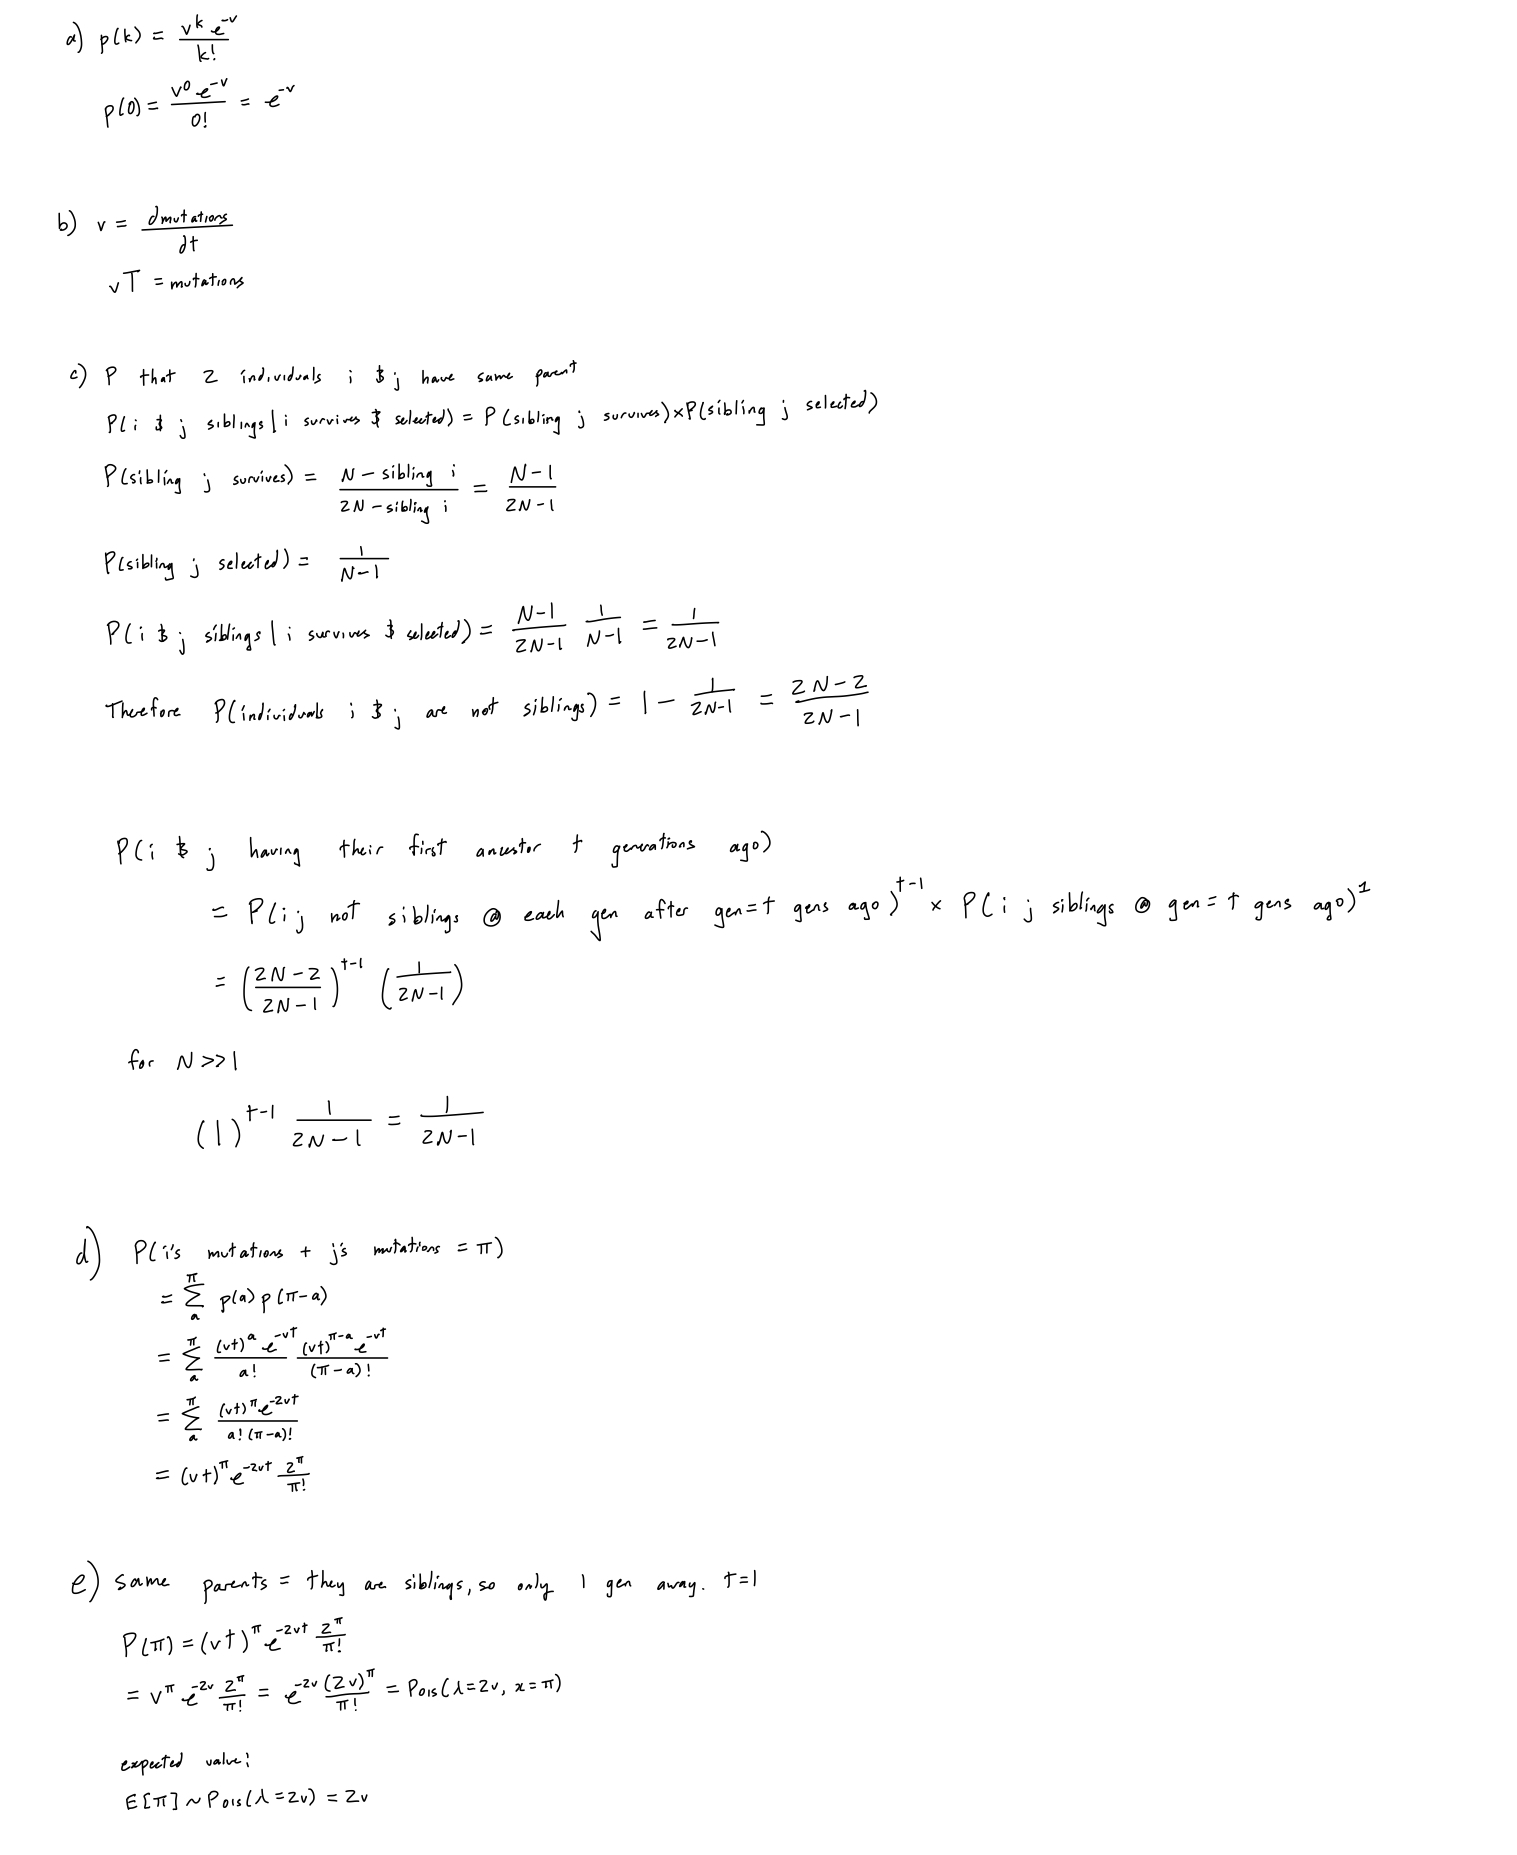 a) p(k) = v^k e^-v / k!
p(0) = v^0 e^-v / 0! = e^-v
b) v = dmutations / dt
vT = mutations
c) P that 2 individuals i & j have same parent
P(i & j siblings | i survives & selected) = P(sibling j survives) x P(sibling j selected)
P(sibling j survives) = N - sibling i / 2N - sibling i = N-1 / 2N-1
P(sibling j selected) = 1 / N-1
P(i & j siblings | i survives & selected) = N-1 / 2N-1 1 / N-1 = 1 / 2N-1
Therefore P(individuals i & j are not siblings) = 1 - 1 / 2N-1 = 2N-2 / 2N-1
P(i & j having their first ancestor t generations ago)
= P(i j not siblings @ each gen after gen=t gens ago)^t-1 x P(i j siblings @ gen = t gens ago)^1
= (2N-2 / 2N-1)^t-1 (1 / 2N-1)
for N >> 1
(1)^t-1 1 / 2N-1 = 1 / 2N-1
d) P(i's mutations + j's mutations = π)
= Σ_a^π p(a) p(π-a)
= Σ_a^π (vt)^a e^-vt / a! (vt)^π-a e^-vt / (π-a)!
= Σ_a^π (vt)^π e^-2vt / a! (π-a)!
= (vt)^π e^-2vt 2^π / π!
e) same parents = they are siblings, so only 1 gen away. t=1
P(π) = (vt)^π e^-2vt 2^π / π!
= v^π e^-2v 2^π / π! = e^-2v (2v)^π / π! = Pois(λ=2v, x=π)
expected value:
E[π] ~ Pois(λ=2v) = 2v